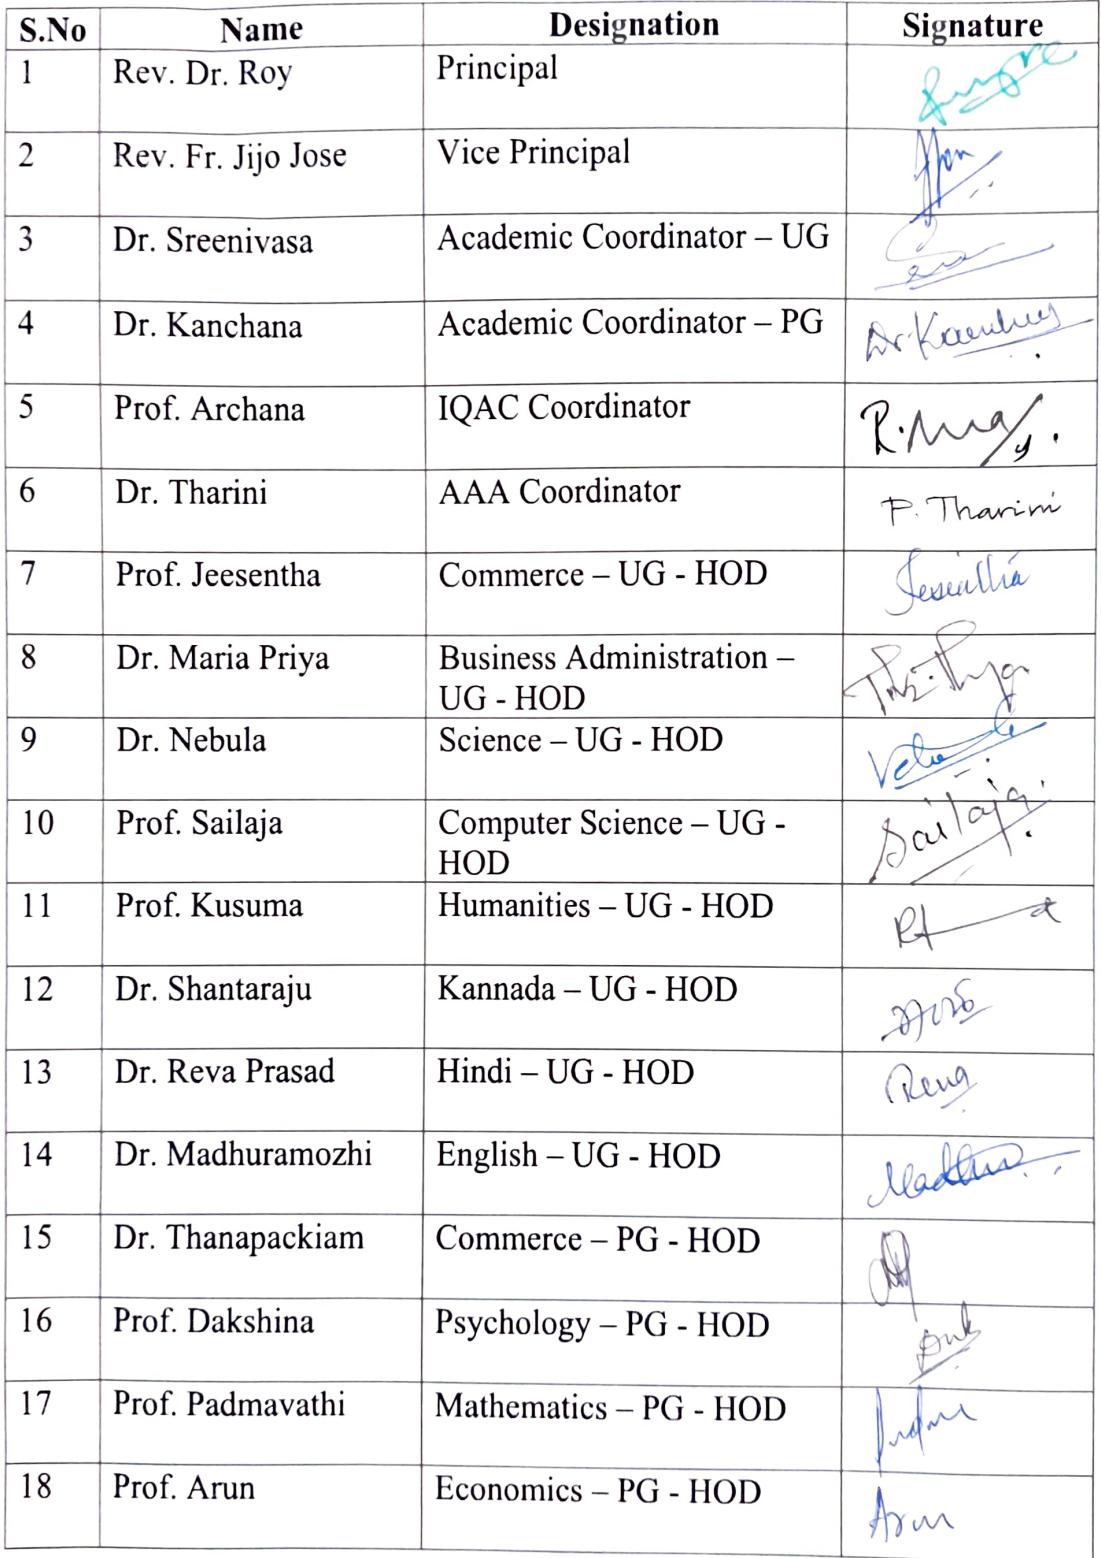 S.No Name Designation Signature
1 Rev. Dr. Roy Principal
2 Rev. Fr. Jijo Jose Vice Principal
3 Dr. Sreenivasa Academic Coordinator – UG
4 Dr. Kanchana Academic Coordinator – PG Dr.
5 Prof. Archana IQAC Coordinator
6 Dr. Tharini AAA Coordinator P. Tharini
7 Prof. Jeesentha Commerce – UG - HOD
8 Dr. Maria Priya Business Administration –
UG - HOD
9 Dr. Nebula Science – UG - HOD
10 Prof. Sailaja Computer Science – UG - Sailaja
HOD
11 Prof. Kusuma Humanities – UG - HOD
12 Dr. Shantaraju Kannada – UG - HOD
13 Dr. Reva Prasad Hindi – UG - HOD
14 Dr. Madhuramozhi English – UG - HOD
15 Dr. Thanapackiam Commerce – PG - HOD
16 Prof. Dakshina Psychology – PG - HOD
17 Prof. Padmavathi Mathematics – PG - HOD
18 Prof. Arun Economics – PG - HOD Arun